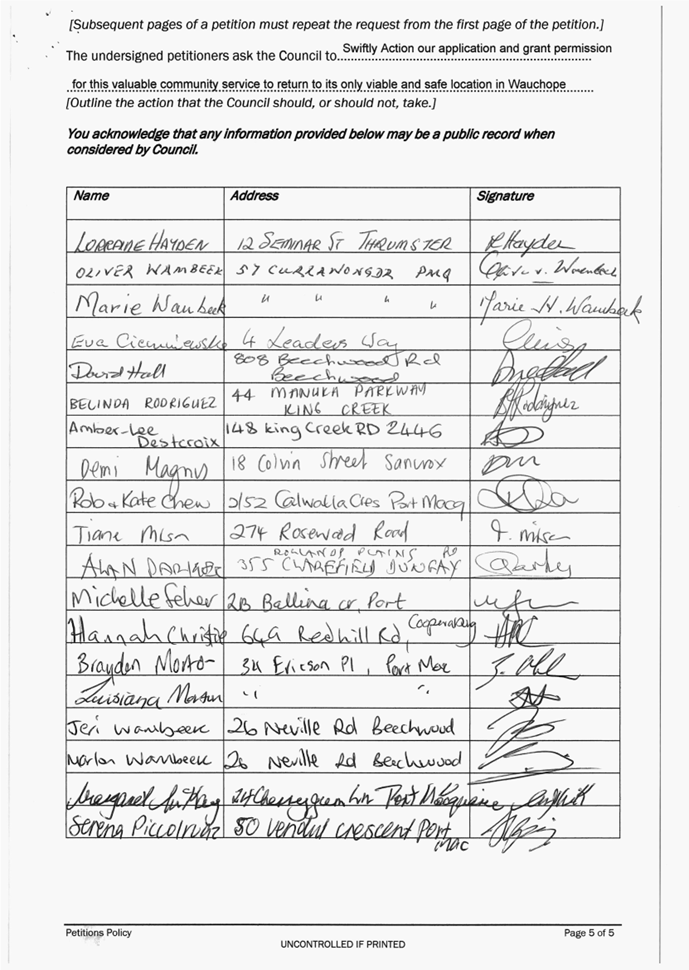 [Subsequent pages of a petition must repeat the request from the first page of the petition.]
The undersigned petitioners ask the Council to.. Swiftly Action our application and grant permission
for this valuable community service to return to its only viable and safe location in Wauchope
[Outline the action that the Council should, or should not, take.]
You acknowledge that any information provided below may be a public record when
considered by Council.
Name Address Signature
LORRAINE HAYDEN 12 SENNAR ST THRUMSTER LHayden
OLIVER WAMBEEK 57 CURRAWONG DR PMQ
Marie Wambeek " " " " Marie H. Wambeek
Eva 4 Leaders Way
David Hall 808 Beechwood Rd
Beechwood
BELINDA RODRIGUEZ 44 MANUKA PARKWAY
KING CREEK BRodriguez
Amber-Lee
Destcroix 148 King Creek RD 2446
Demi Magnus 18 Colvin Street
Rob & Kate Chew 2/52 Calwalla Cres Port Macq
Tiane 274 Rosewood Road
ROLLANDS PLAINS RD
ALAN 355
Michelle Feher 2B Ballina cr, Port
Hannah Christie 64A Redhill Rd,
Brayden 34 Ericson Pl, Port Mac
Luisiana " "
Jeri Wambeek 26 Neville Rd Beechwood
Marlon Wambeek 26 Neville Rd Beechwood
Margaret Port Macquarie
Serena 50 crescent Port
Mac
Petitions Policy Page 5 of 5
UNCONTROLLED IF PRINTED